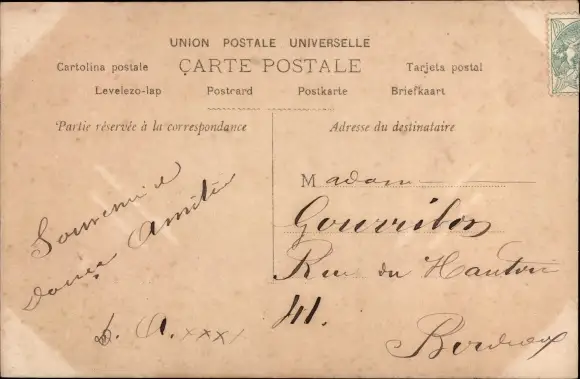 UNION POSTALE UNIVERSELLE
CARTE POSTALE
Cartolina postale
Tarjeta postal
Levelezo-lap
Postcard
Postkarte
Briefkaart
Partie réservée à la correspondance
Souvenir d
douce Amitié
A. xxxx
Adresse du destinataire
Madame
Rue du
41.
Bordeaux